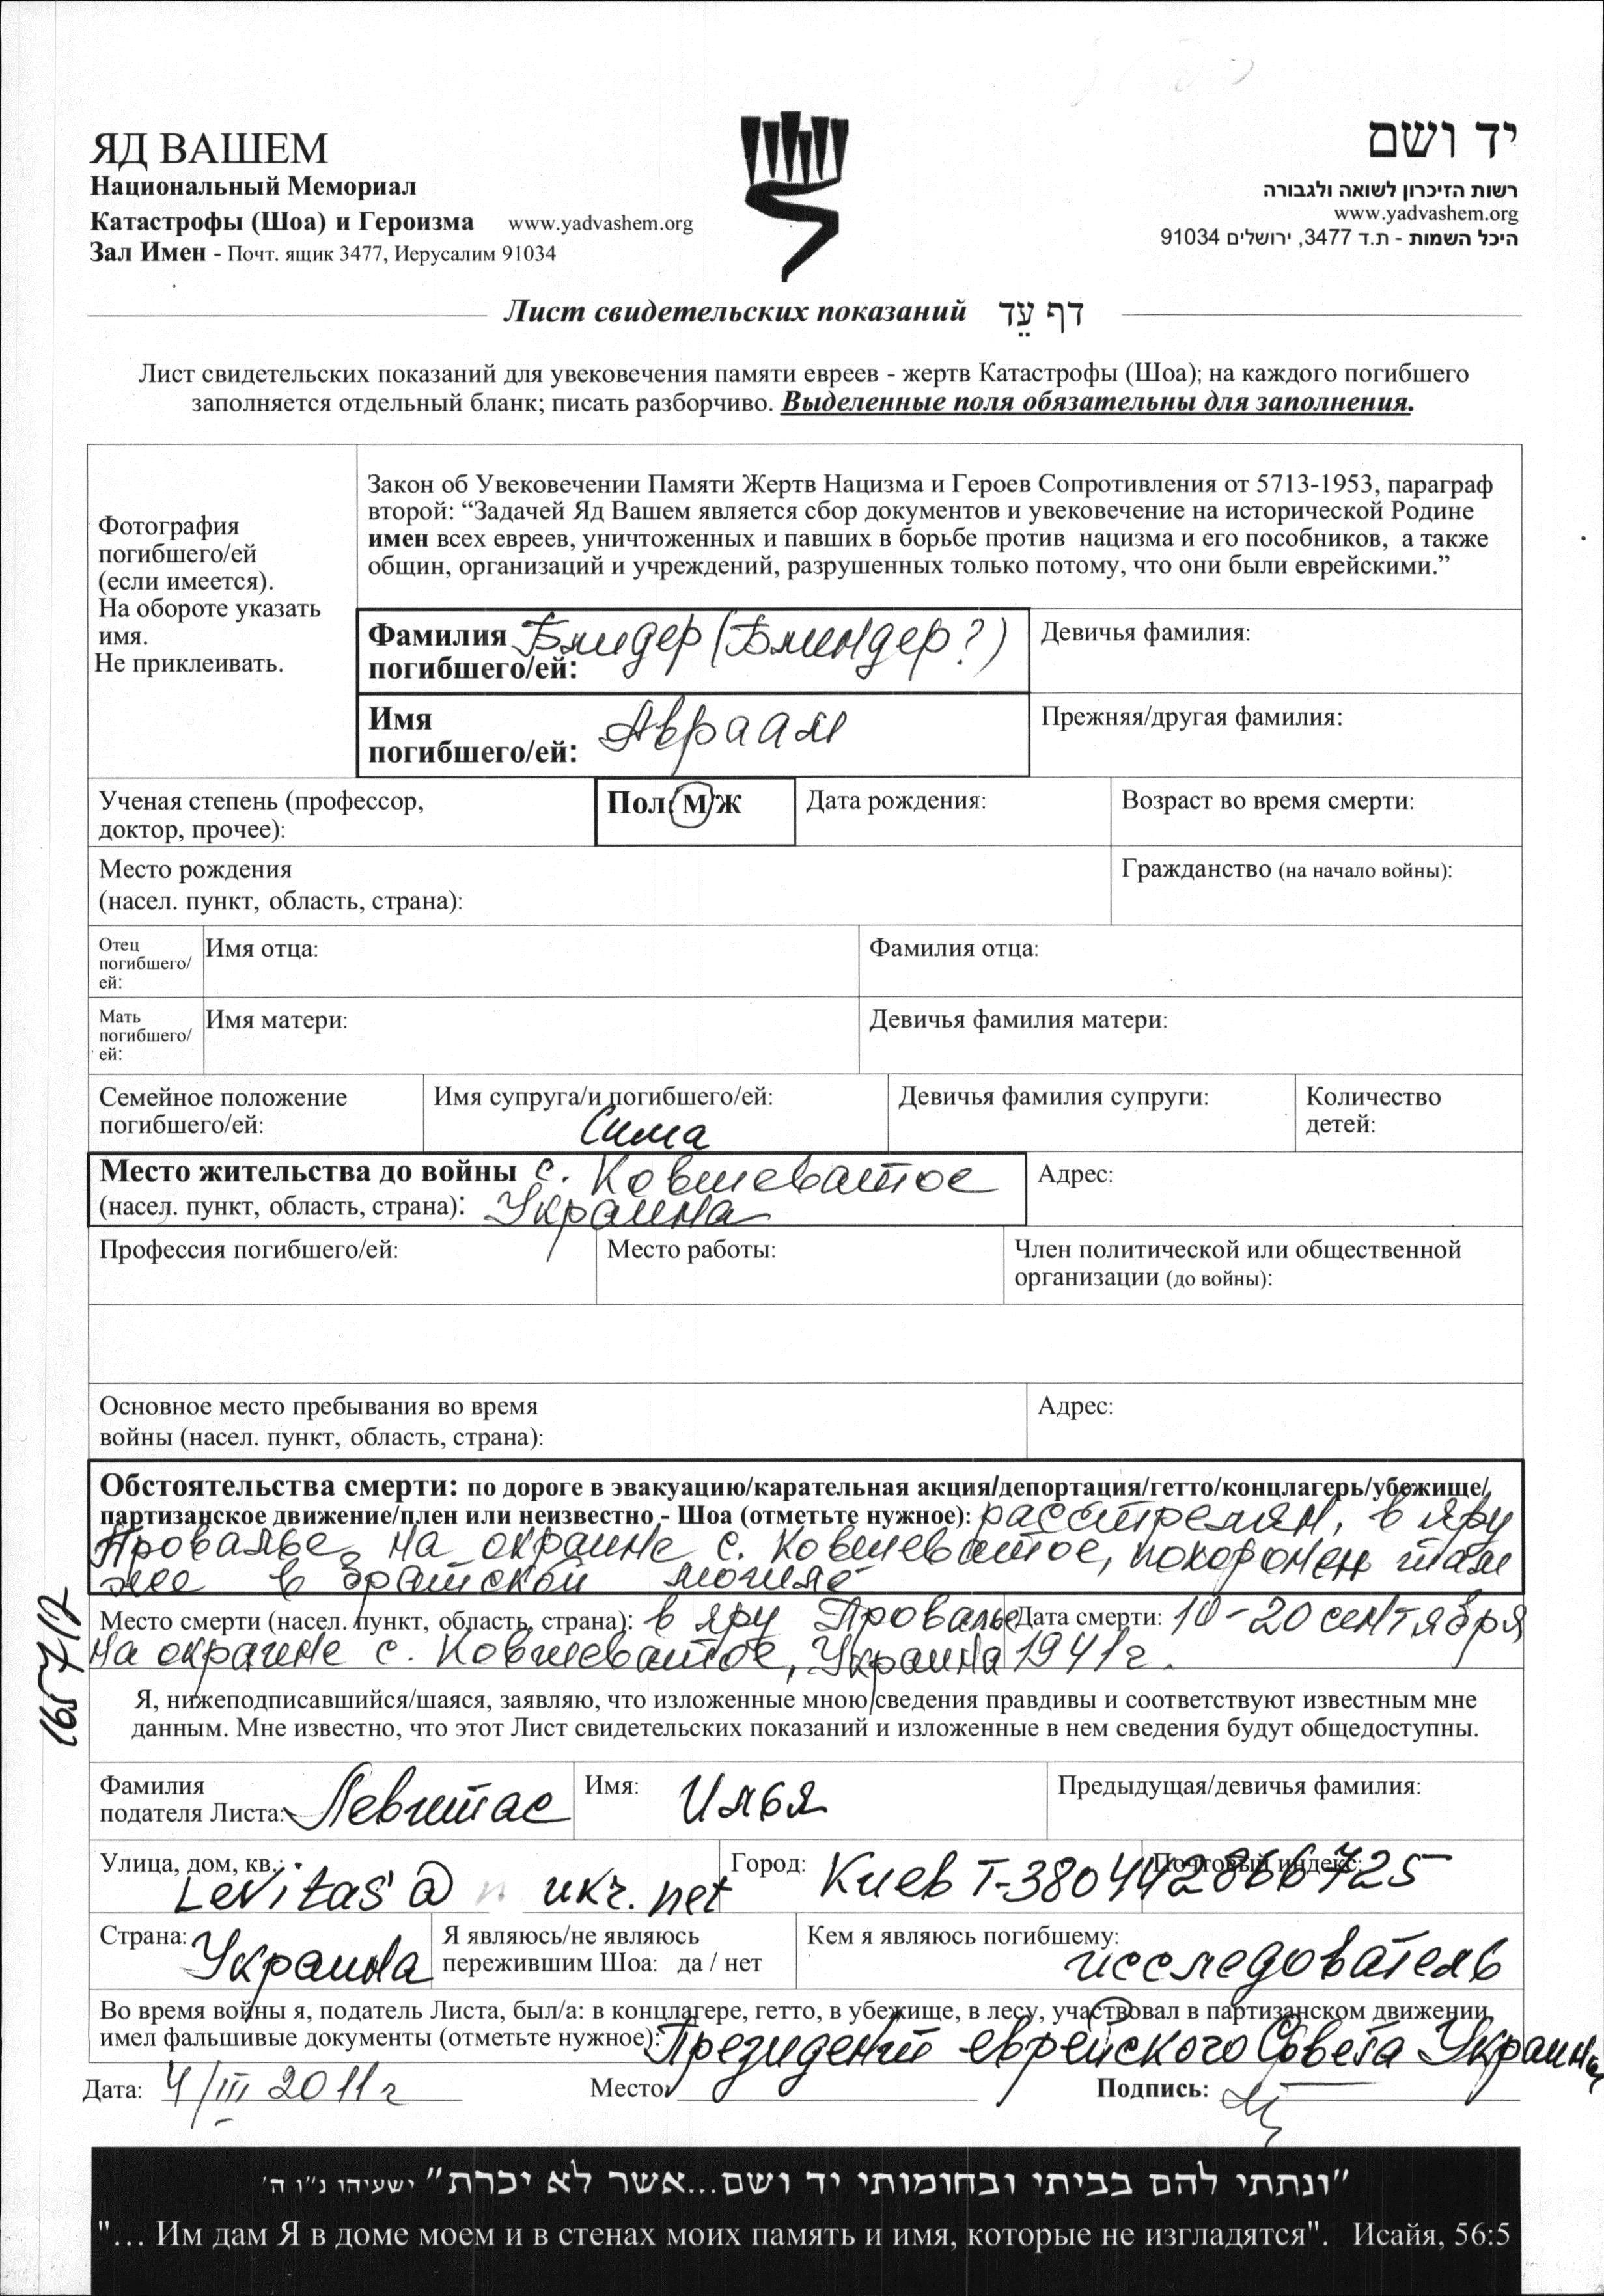 ЯД ВАШЕМ
Национальный Мемориал
Катастрофы (Шоа) и Героизма www.yadvashem.org
Зал Имен - Почт. ящик 3477, Иерусалим 91034
יד ושם
רשות הזיכרון לשואה ולגבורה
www.yadvashem.org
היכל השמות - ת.ד 3477, ירושלים 91034
Лист свидетельских показаний דף עֵד
Лист свидетельских показаний для увековечения памяти евреев - жертв Катастрофы (Шоа); на каждого погибшего
заполняется отдельный бланк; писать разборчиво. Выделенные поля обязательны для заполнения.
Фотография
погибшего/ей
(если имеется).
На обороте указать
имя.
Не приклеивать.
Закон об Увековечении Памяти Жертв Нацизма и Героев Сопротивления от 5713-1953, параграф
второй: “Задачей Яд Вашем является сбор документов и увековечение на исторической Родине
имен всех евреев, уничтоженных и павших в борьбе против нацизма и его пособников, а также
общин, организаций и учреждений, разрушенных только потому, что они были еврейскими.”
Фамилия Блидер (Блиндер?)
погибшего/ей:
Девичья фамилия:
Имя Авраам
погибшего/ей:
Прежняя/другая фамилия:
Ученая степень (профессор,
доктор, прочее):
Пол: М/Ж
Дата рождения:
Возраст во время смерти:
Место рождения
(насел. пункт, область, страна):
Гражданство (на начало войны):
Отец
погибшего/
ей:
Имя отца:
Фамилия отца:
Мать
погибшего/
ей:
Имя матери:
Девичья фамилия матери:
Семейное положение
погибшего/ей:
Имя супруга/и погибшего/ей:
Сима
Девичья фамилия супруги:
Количество
детей:
Место жительства до войны с. Ковшеватое
(насел. пункт, область, страна): Украина
Адрес:
Профессия погибшего/ей:
Место работы:
Член политической или общественной
организации (до войны):
Основное место пребывания во время
войны (насел. пункт, область, страна):
Адрес:
Обстоятельства смерти: по дороге в эвакуацию/карательная акция/депортация/гетто/концлагерь/убежище/
партизанское движение/плен или неизвестно - Шоа (отметьте нужное): расстрелян, в яру
Провалье на окраине с. Ковшеватое, похоронен там
же в братской могиле
Место смерти (насел. пункт, область, страна): в яру Провалье
на окраине с. Ковшеватое, Украина
Дата смерти: 10-20 сентября
1941г.
16571/7
Я, нижеподписавшийся/шаяся, заявляю, что изложенные мною сведения правдивы и соответствуют известным мне
данным. Мне известно, что этот Лист свидетельских показаний и изложенные в нем сведения будут общедоступны.
Фамилия
подателя Листа: Левитас
Имя: Илья
Предыдущая/девичья фамилия:
Улица, дом, кв.:
Levitas@ ukr.net
Город: Киев Т-380442866725
Почтовый индекс:
Страна: Украина
Я являюсь/не являюсь
пережившим Шоа: да / нет
Кем я являюсь погибшему:
исследователь
Во время войны я, податель Листа, был/а: в концлагере, гетто, в убежище, в лесу, участвовал в партизанском движении,
имел фальшивые документы (отметьте нужное): Президент еврейского Совета Украины
Дата: 4/III 2011г
Место:
Подпись:
"ונתתי להם בביתי ובחומותי יד ושם...אשר לא יכרת" ישעיהו נ"ו ה'
"... Им дам Я в доме моем и в стенах моих память и имя, которые не изгладятся". Исайя, 56:5